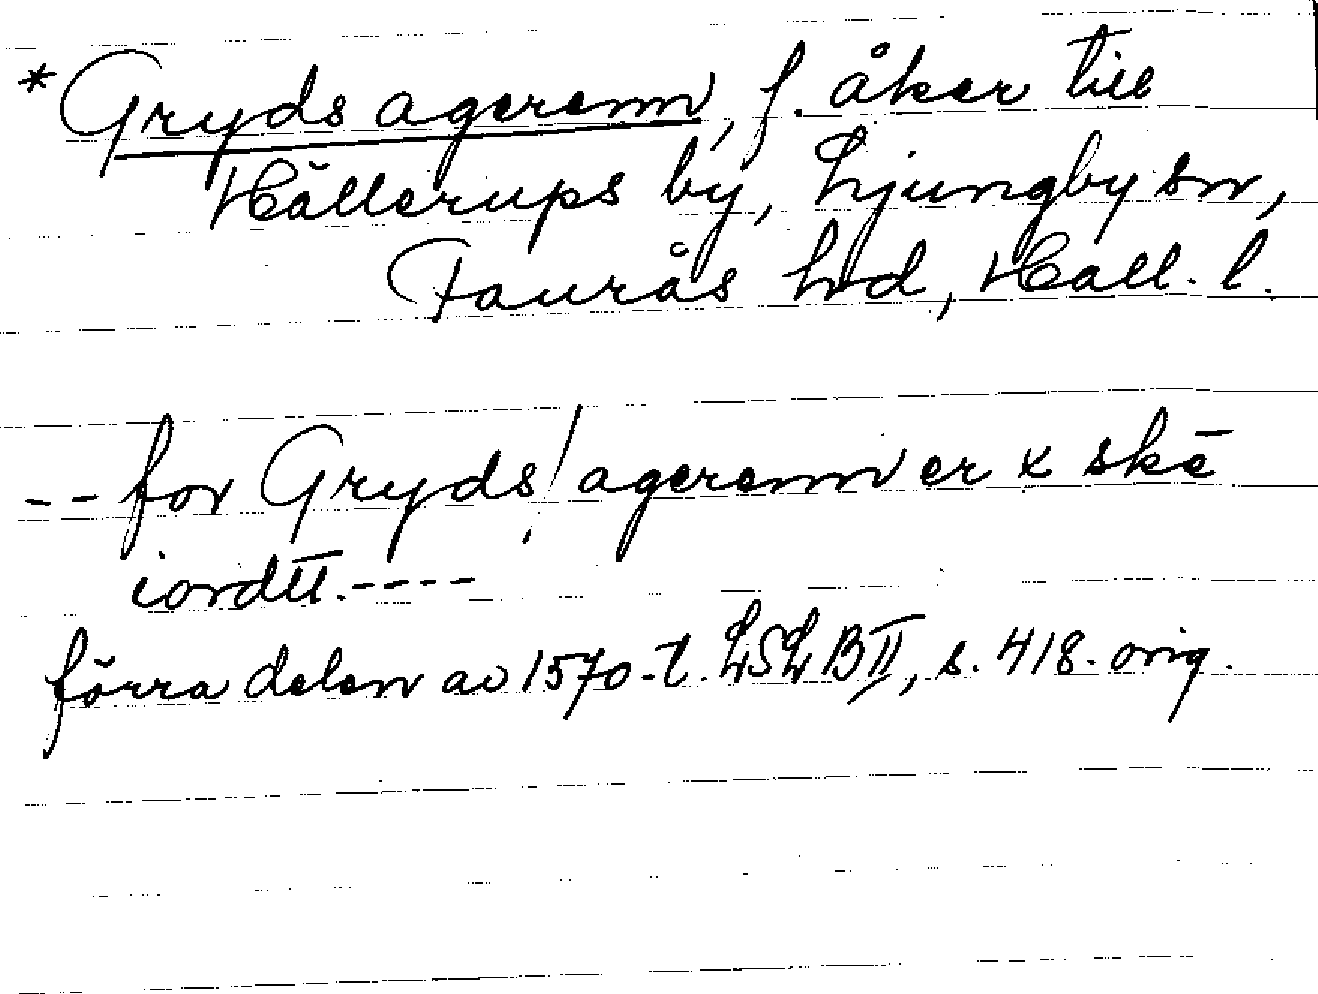 *Gryds agerenn, f. åker till
Hällerups by, Ljungby sn,
Faurås hd, Hall. l.
-- for Gryds/agerenn er x skē
iordtt.----
förra delen av 1570-t. LSLB II, s. 418. orig.